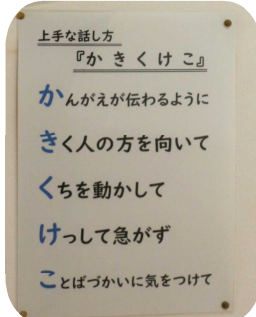 上手な話し方
『かきくけこ』
かんがえが伝わるように
きく人の方を向いて
くちを動かして
けっして急がず
ことばづかいに気をつけて